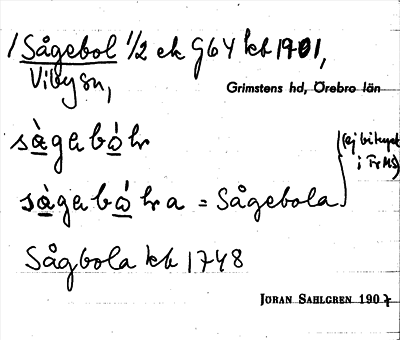 / Sågebol 1/2 ek G64 kb 1901,
Viby sn,
Grimstens hd, Örebro län
sàgebó̱lr
sàgebó̱lra = Sågebola
(ej betyget
i Fr HS)
Sågbola kb 1748
JÖRAN SAHLGREN 1907